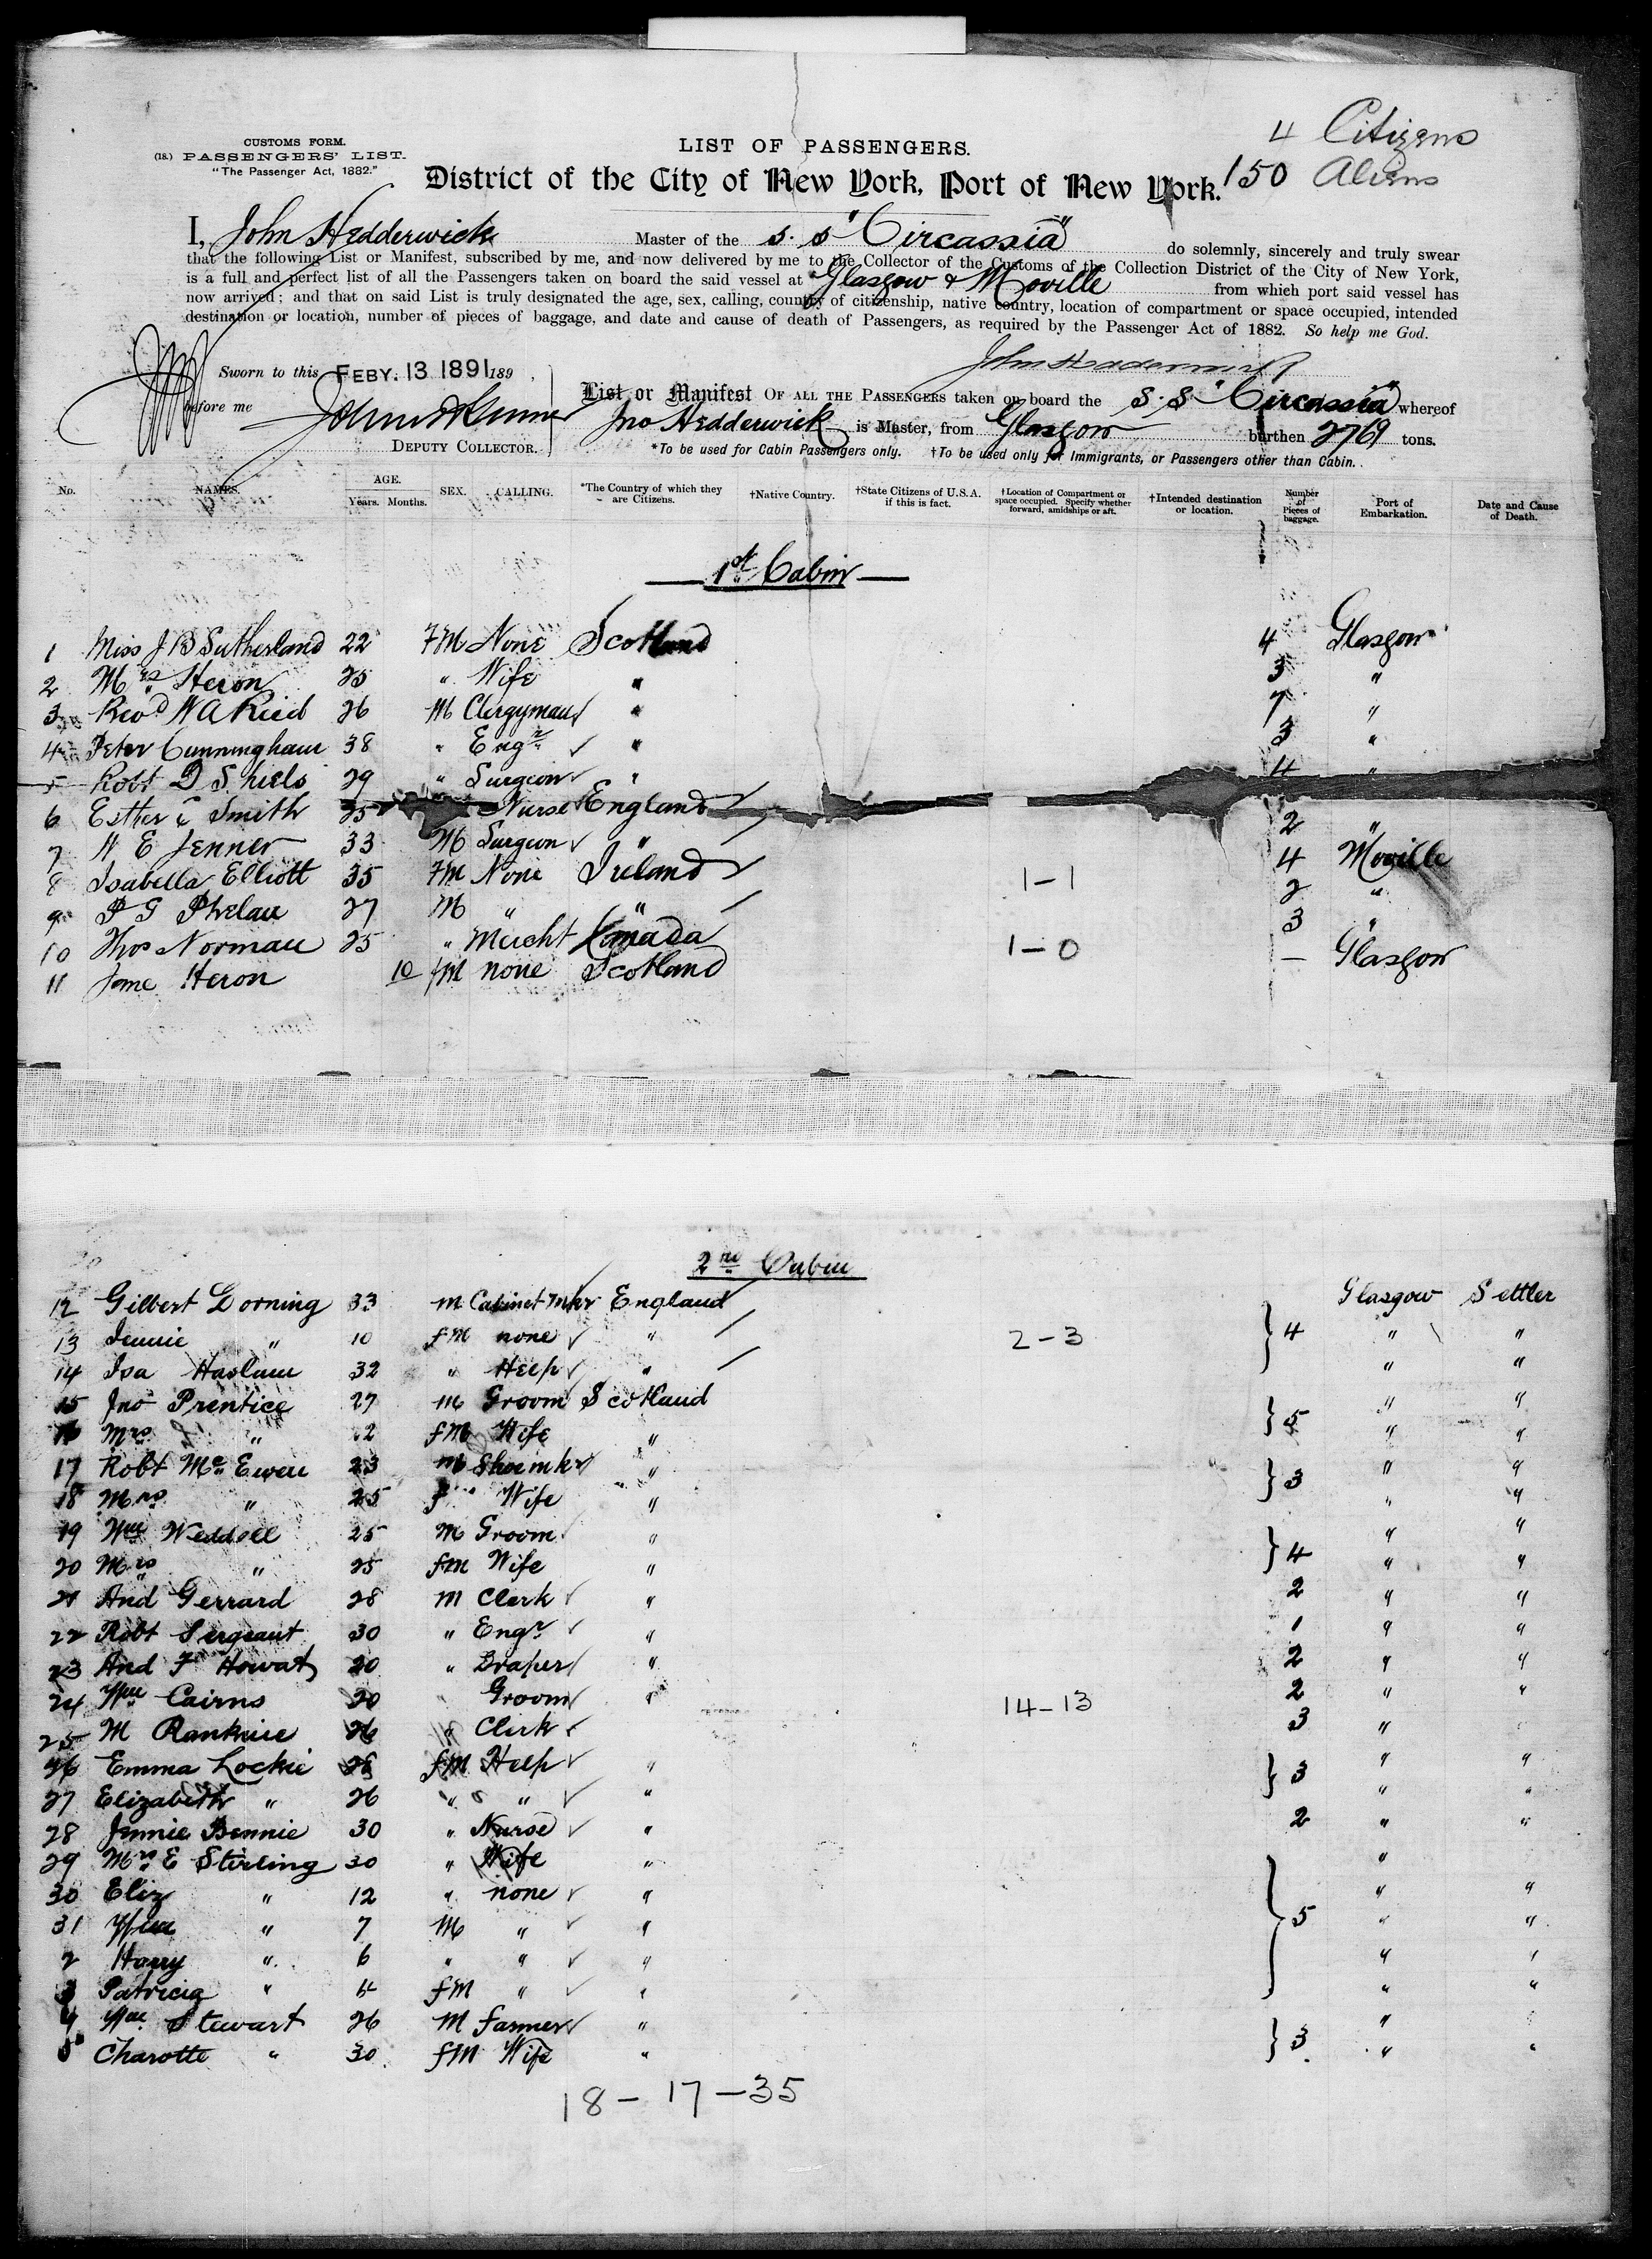 4 Citizens
150 Aliens
CUSTOMS FORM.
(18.) PASSENGERS' LIST.
"The Passenger Act, 1882."
LIST OF PASSENGERS.
District of the City of New York, Port of New York.
I, John Hedderwick Master of the S. S "Circassia" do solemnly, sincerely and truly swear
that the following List or Manifest, subscribed by me, and now delivered by me to the Collector of the Customs of the Collection District of the City of New York,
is a full and perfect list of all the Passengers taken on board the said vessel at Glasgow & Moville from which port said vessel has
now arrived; and that on said List is truly designated the age, sex, calling, country of citizenship, native country, location of compartment or space occupied, intended
destination or location, number of pieces of baggage, and date and cause of death of Passengers, as required by the Passenger Act of 1882. So help me God.
John Hedderwick
Sworn to this FEBY. 13 1891 189 ,
before me
DEPUTY COLLECTOR.
List or Manifest OF ALL THE PASSENGERS taken on board the S. S. "Circassia" whereof
Jno Hedderwick is Master, from Glasgow burthen 2769 tons.
*To be used for Cabin Passengers only. †To be used only for Immigrants, or Passengers other than Cabin.
No. NAMES. AGE. Years. Months. SEX. CALLING. *The Country of which they are Citizens. †Native Country. †State Citizens of U.S.A. if this is fact. †Location of Compartment or space occupied. Specify whether forward, amidships or aft. †Intended destination or location. Number of Pieces of baggage. Port of Embarkation. Date and Cause of Death.
1st Cabin
1 Miss J B Sutherland 22 FM None Scotland 4 Glasgow
2 Mrs Heron 25 " Wife " 3 "
3 Revd W A Reid 26 M Clergyman " 7 "
4 Peter Cunningham 38 " Engr " 3 "
5 Robt D Shiels 29 " Surgeon " 4 "
6 Esther E Smith 25 Nurse England 2 "
7 W E Jenner 33 M Surgeon "
8 Isabella Elliott 35 FM None Ireland 1-1 4 Moville
9 P G Phelan 27 M " " 2 "
10 Thos Norman 25 " Mercht Kanada 1-0 3 "
11 Jame Heron 10 fM none Scotland — Glasgow
2nd Cabin
12 Gilbert Dorning 33 m Cabinet mkr England Glasgow Settler
13 Jennie " 10 fM none " 2-3 } 4 " "
14 Isa Haslam 32 " Help " " "
15 Jno Prentice 27 m Groom Scotland " "
16 Mrs " 2 fM Wife " } 5 " "
17 Robt McEwen 23 m Shoemkr " " "
18 Mrs " 25 f Wife " } 3 " "
19 Wm Weddell 25 M Groom " " "
20 Mrs " 25 fM Wife " } 4 " "
21 And Gerrard 28 M Clerk " 2 " "
22 Robt Sergeant 30 " Engr " 1 " "
23 And F Howat 20 " Draper " 2 " "
24 Wm Cairns 20 Groom " 14-13 2 " "
25 M Rankine 26 " Clerk 3 "
26 Emma Lockie 28 fM Help " } 3 " "
27 Elizabeth " 26 " " " " "
28 Jennie Bennie 30 " Nurse " 2 " "
29 Mrs E Stirling 30 " Wife " "
30 Eliz " 12 " none " " "
31 Wm " 7 M " " } 5 " "
2 Harry " 6 " " " " "
3 Patricia " 4 fM " " " "
4 Wm Stewart 26 M farmer " "
5 Charotte " 30 fM Wife " } 3 " "
18-17-35